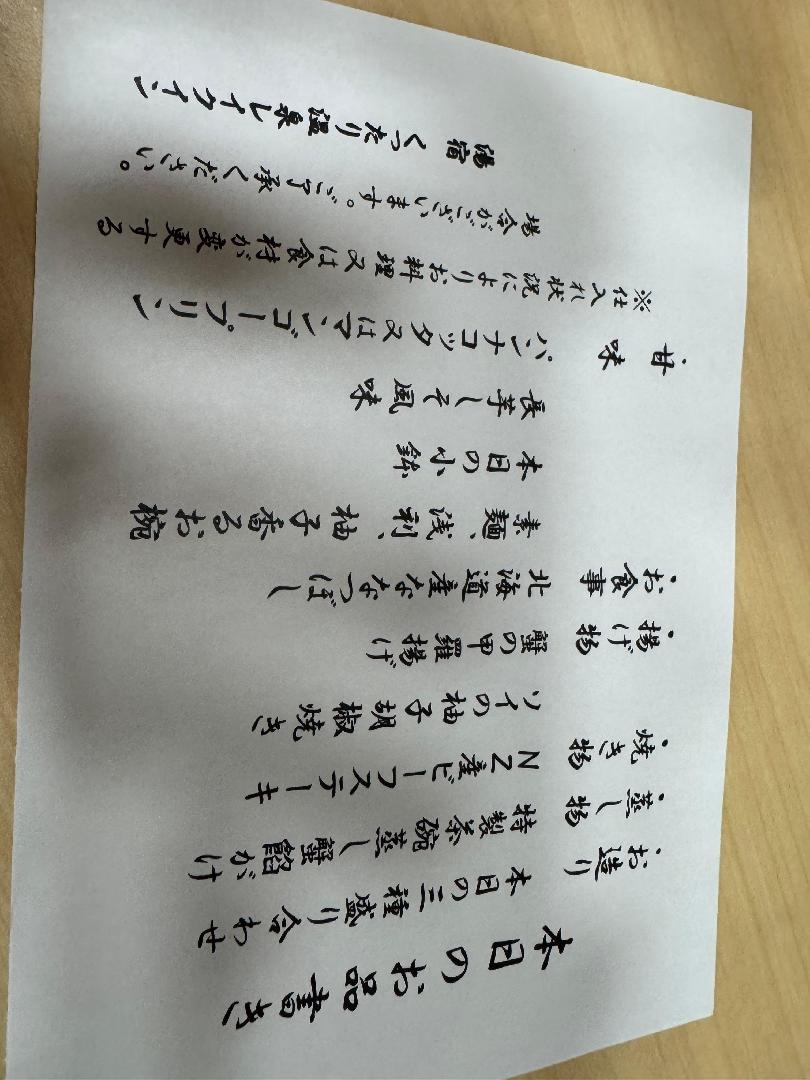 本日のお品書き
・お造り 本日の三種盛り合わせ
・蒸し物 特製茶碗蒸し蟹餡がけ
・焼き物 NZ産ビーフステーキ
ソイの柚子胡椒焼き
・揚げ物 蟹の甲羅揚げ
・お食事 北海道産ななつぼし
素麺、浅利、柚子香るお椀
本日の小鉢
長芋しそ風味
・甘味 パンナコッタ又はマンゴープリン
※仕入れ状況によりお料理又は食材が変更する
場合がございます。ご了承ください。
湯宿 くったり温泉レイクイン